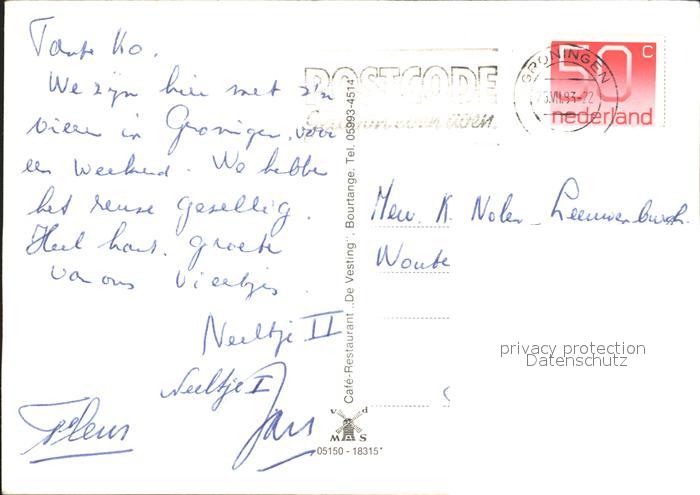 Tante Ko.
We zijn hier met z'n
vieren in Groningen, voor
een weekend. We hebben
het reuze gezellig.
Heel hart. groeten
van ons viertjes.
Neeltje II
Neeltje I
Fleur
Jan
POSTCODE
GRONINGEN
25.VII.83-22
50 c
nederland
Mew. K. Nolen-Leeuwenburgh.
Woute
Café-Restaurant „De Vesting”, Bourtange, Tel. 05993-4514
v d
MAS
05150 - 18315*
privacy protection
Datenschutz